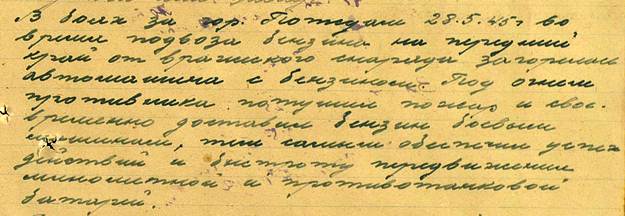 В боях за гор. Потсдам 28.5.45г во
время подвоза бензина на передний
край от вражеского снаряда загорелась
автомашина с бензином. Под огнем
противника потушил пожар и свое-
временно доставил бензин боевым
машинам, тем самым обеспечил успех
действий и быстроту передвижения
минометной и противотанковой
батарей.